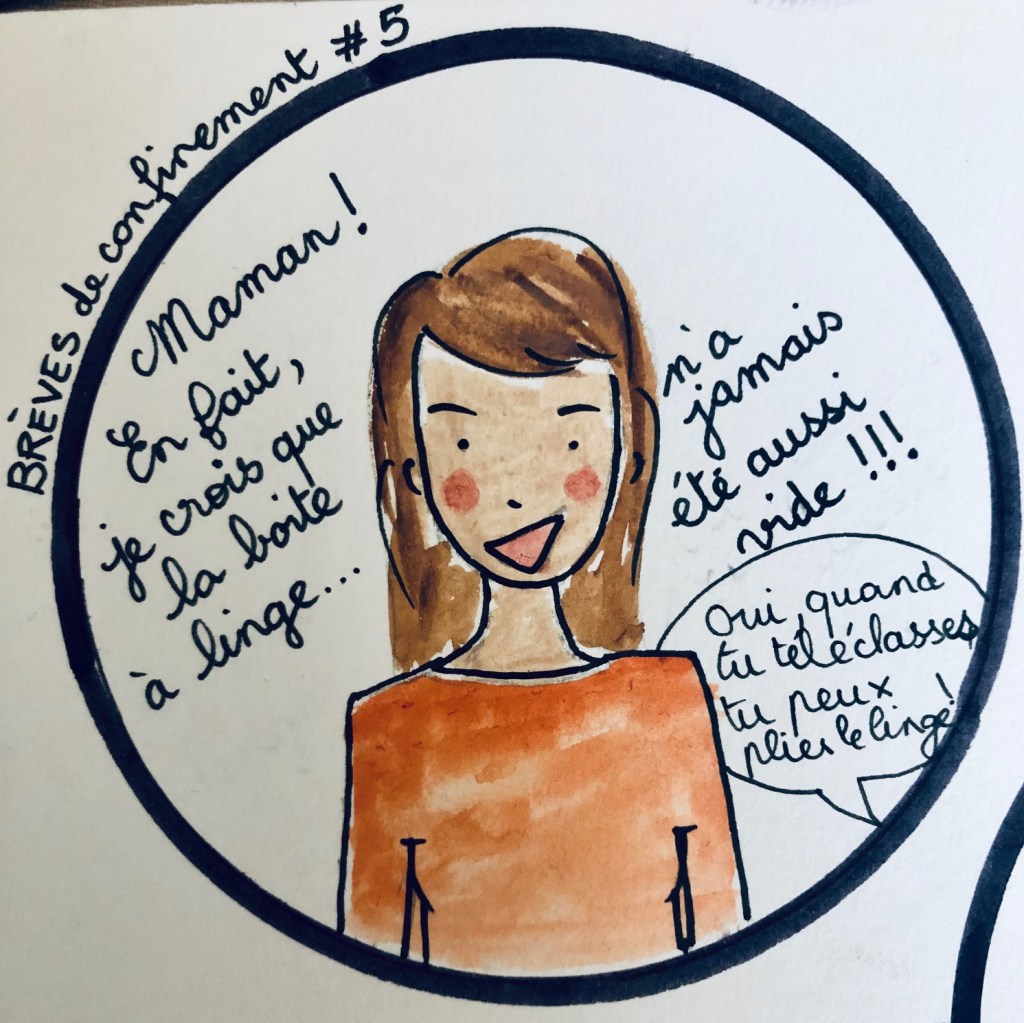 BRÈVES de confinement #5
Maman !
En fait,
je crois que
la boite
à linge...
n'a
jamais
été aussi
vide !!!
Oui, quand
tu téléclasses,
tu peux
plier le linge !